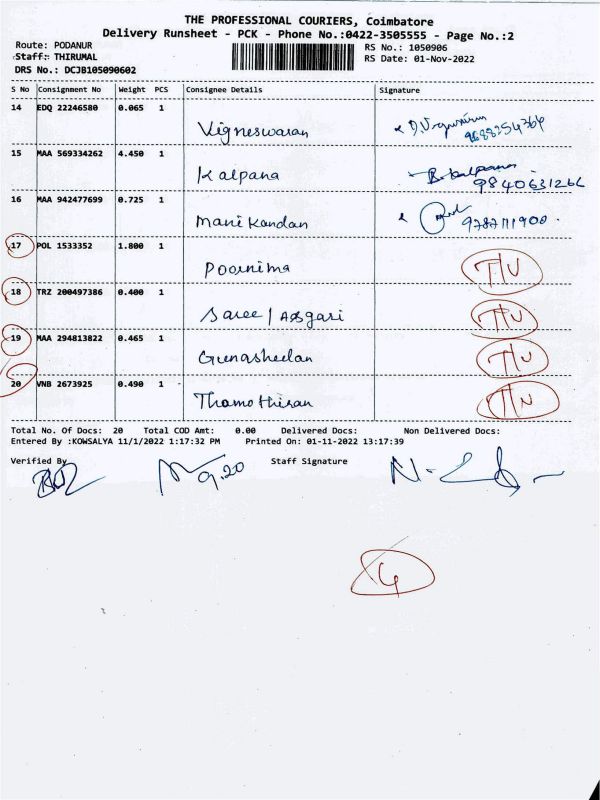 THE PROFESSIONAL COURIERS, Coimbatore
Delivery Runsheet - PCK - Phone No.:0422-3505555 - Page No.:2
Route: PODANUR RS No.: 1050906
Staff: THIRUMAL RS Date: 01-Nov-2022
DRS No.: DCJB105090602
S No Consignment No Weight PCS Consignee Details Signature
14 EDQ 22246580 0.065 1 Vigneswaran
15 MAA 569334262 4.450 1 Kalpana B. Kalpana 9840631266
16 MAA 942477699 0.725 1 Manikandan 9787111900
17 POL 1533352 1.800 1 Poornima
18 TRZ 200497386 0.400 1 Saree / Asgari
19 MAA 294813822 0.465 1 Gunasheelan
20 VNB 2673925 0.490 1 Thamothiran
Total No. Of Docs: 20 Total COD Amt: 0.00 Delivered Docs: Non Delivered Docs:
Entered By :KOWSALYA 11/1/2022 1:17:32 PM Printed On: 01-11-2022 13:17:39
Verified By Staff Signature
9.20
4